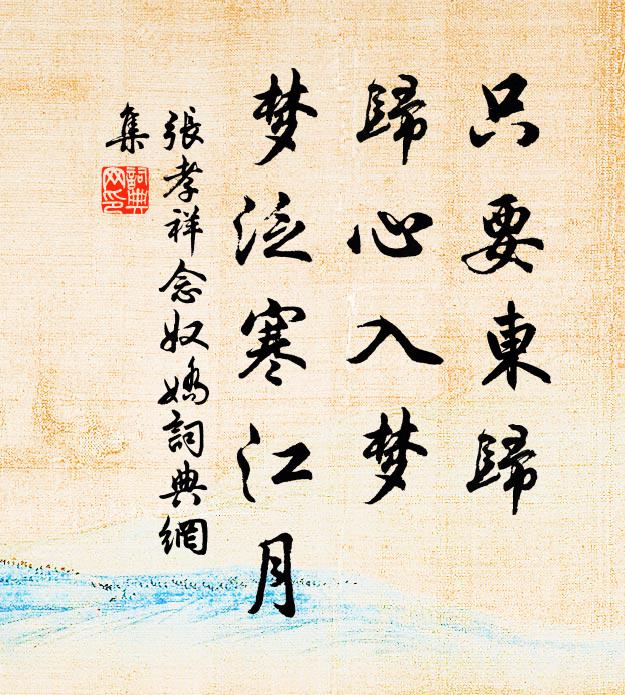 只要東歸
歸心入梦
梦泛寒江月
張孝祥念奴嬌詞典網
集
詞典
网印